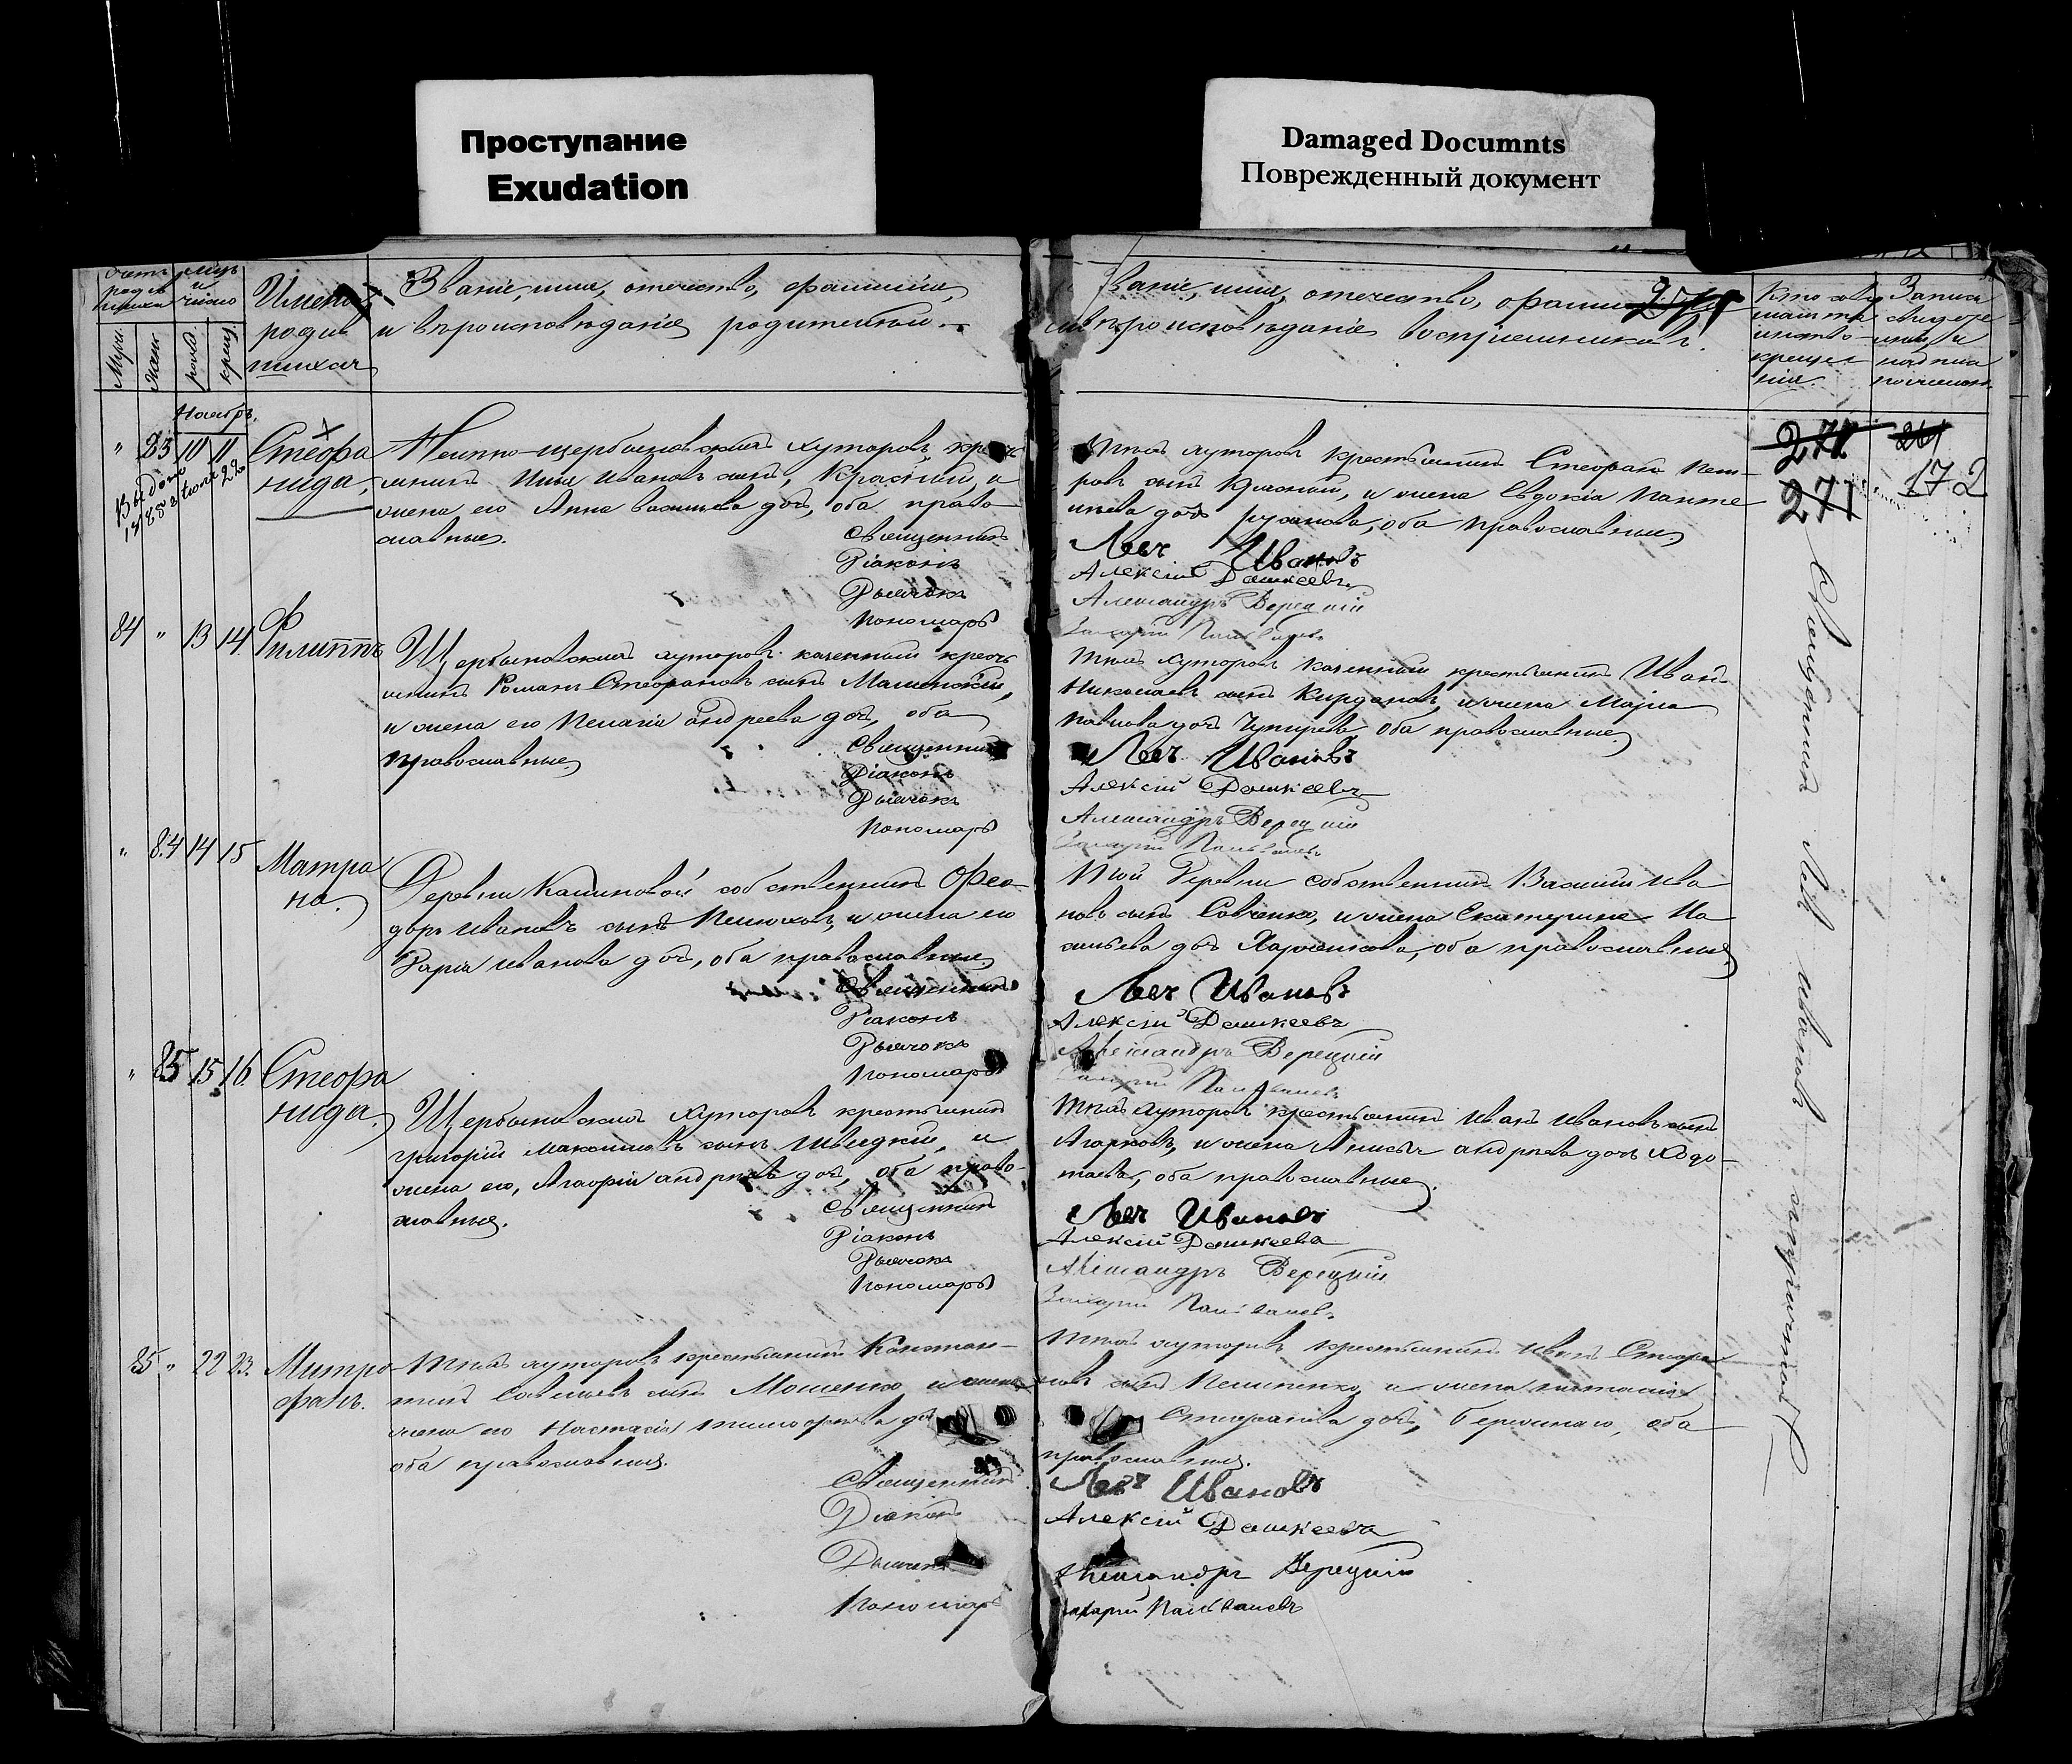 Проступание
Exudation
Damaged Documnts
Поврежденный документ
Счетъ родив шихся
Муж. Жен.
Мцъ и число
рожд. крещ.
Имена родив шихся
Званіе, имя, отечество, фамилія,
и вѣроисповѣданіе родителей.
Званіе, имя, отечество, фамилія
и вѣроисповѣданіе воспріемниковъ.
Кто совер шалъ та инство креще нія.
Ноября.
" 83 10 11 Стефа нида.
Выдано 1882 22
Ейско-щербиновскихъ хуторовъ крест
янинъ Илья Ивановъ сынъ, Красный, и
жена его Анна Васильева дочь, оба право
славные.
Священникъ
Діаконъ
Дьячокъ
Пономарь
Тѣхъ хуторовъ крестьянинъ Стефанъ Пет
ровъ сынъ Красный, и жена Евдокія Панте
лѣева дочь оба православные.
Левъ Ивановъ
Алексій Дашкеевъ
Александръ Верецкій
Захарій
271
271
172
84 " 13 14 Филиппъ
Щербиновскихъ хуторовъ казенный крест
янинъ Романъ Стефановъ сынъ
и жена его Пелагія Андреева дочь, оба
православные.
Священникъ
Діаконъ
Дьячокъ
Пономарь
Тѣхъ хуторовъ казенный крестьянинъ Иванъ
Николаевъ сынъ Кирдановъ, и жена Марія
Павлова дочь оба православные.
Левъ Ивановъ
Алексій Дашкеевъ
Александръ Верецкій
Захарій
" 84 14 15 Матро на.
Деревни Калиновой собственникъ Фео
доръ Ивановъ сынъ и жена его
Дарія Иванова дочь, оба православные.
Священникъ
Діаконъ
Дьячокъ
Пономарь
Той деревни собственникъ Василій Ива
новъ сынъ Савченко, и жена Екатерина
дочь оба православные.
Левъ Ивановъ
Алексій Дашкеевъ
Александръ Верецкій
Захарій
" 85 15 16 Стефа нида.
Щербиновскихъ хуторовъ крестьянинъ
Григорій Максимовъ сынъ Шведкій, и
жена его, Агафія Андреева дочь, оба право
славные.
Священникъ
Діаконъ
Дьячокъ
Пономарь
Тѣхъ хуторовъ крестьянинъ Иванъ Ивановъ сынъ
Агарковъ, и жена Анисья Андреева дочь
оба православные.
Левъ Ивановъ
Алексій Дашкеевъ
Александръ Верецкій
Захарій
85 " 22 23. Митро фанъ.
Тѣхъ хуторовъ крестьянинъ Констан
тинъ Савельевъ сынъ Мошенко
жена его Настасія Тимофеева
оба православные.
Священникъ
Діаконъ
Дьячокъ
Пономарь
Тѣхъ хуторовъ крестьянинъ Иванъ Стефа
новъ сынъ и жена
Стефанова дочь, оба
православные.
Левъ Ивановъ
Алексій Дашкеевъ
Александръ Верецкій
Захарій
Священникъ Левъ Ивановъ